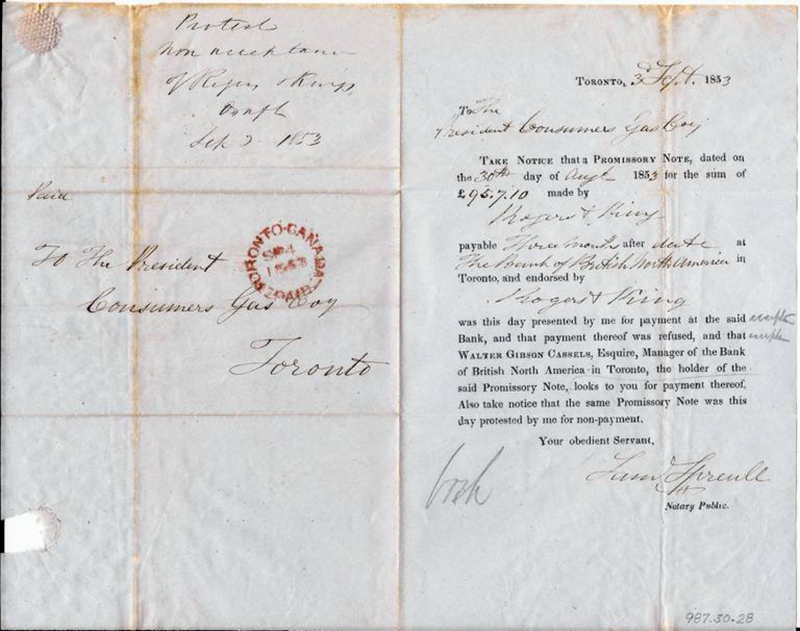 Protest
Non acceptance
of Rogers & Kings
Draft
Sep 3 1853
Paid
To The President
Consumers Gas Coy
Toronto
TORONTO·CANADA
PAID
TORONTO, 3 Sept. 1853
To The
President Consumers Gas Coy
TAKE NOTICE that a PROMISSORY NOTE, dated on
the 30th day of Augt 1853 for the sum of
£95.7.10 made by
Rogers & King
payable Three months after date at
The Bank of British North America in
Toronto, and endorsed by
Rogers & King
was this day presented by me for payment at the said
Bank, and that payment thereof was refused, and that
WALTER GIBSON CASSELS, Esquire, Manager of the Bank
of British North America in Toronto, the holder of the
said Promissory Note, looks to you for payment thereof.
Also take notice that the same Promissory Note was this
day protested by me for non-payment.
Your obedient Servant,
Spreull
Notary Public.
987.30.28